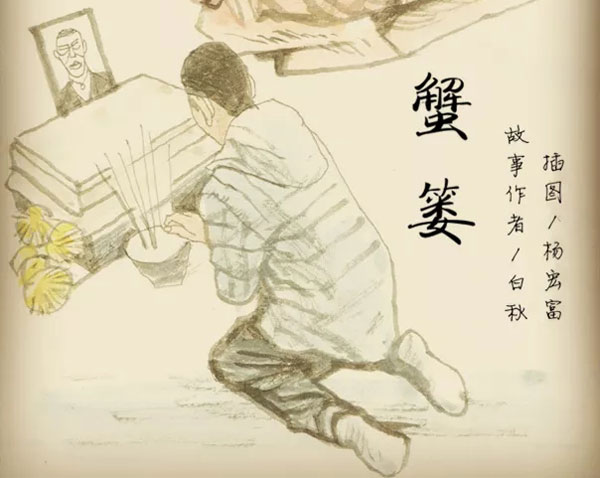 蟹篓
故事作者/白秋
插图/杨宏富